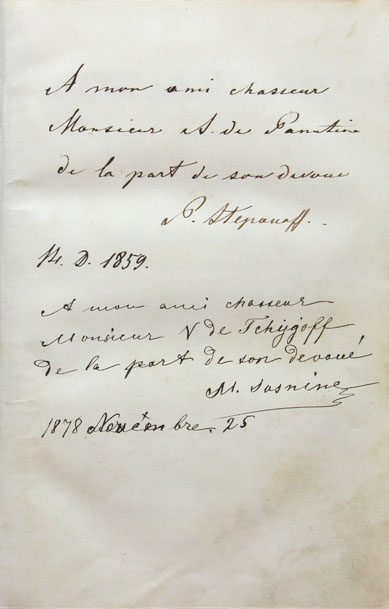 A mon ami chasseur
Monsieur A. de Panutine
de la part de son devoué
P. Stepanoff.
D. 1859.
A mon ami chasseur
Monsieur V de Tchijgoff
de la part de son devoué,
M. Sosnine
1878 Novémbre. 25